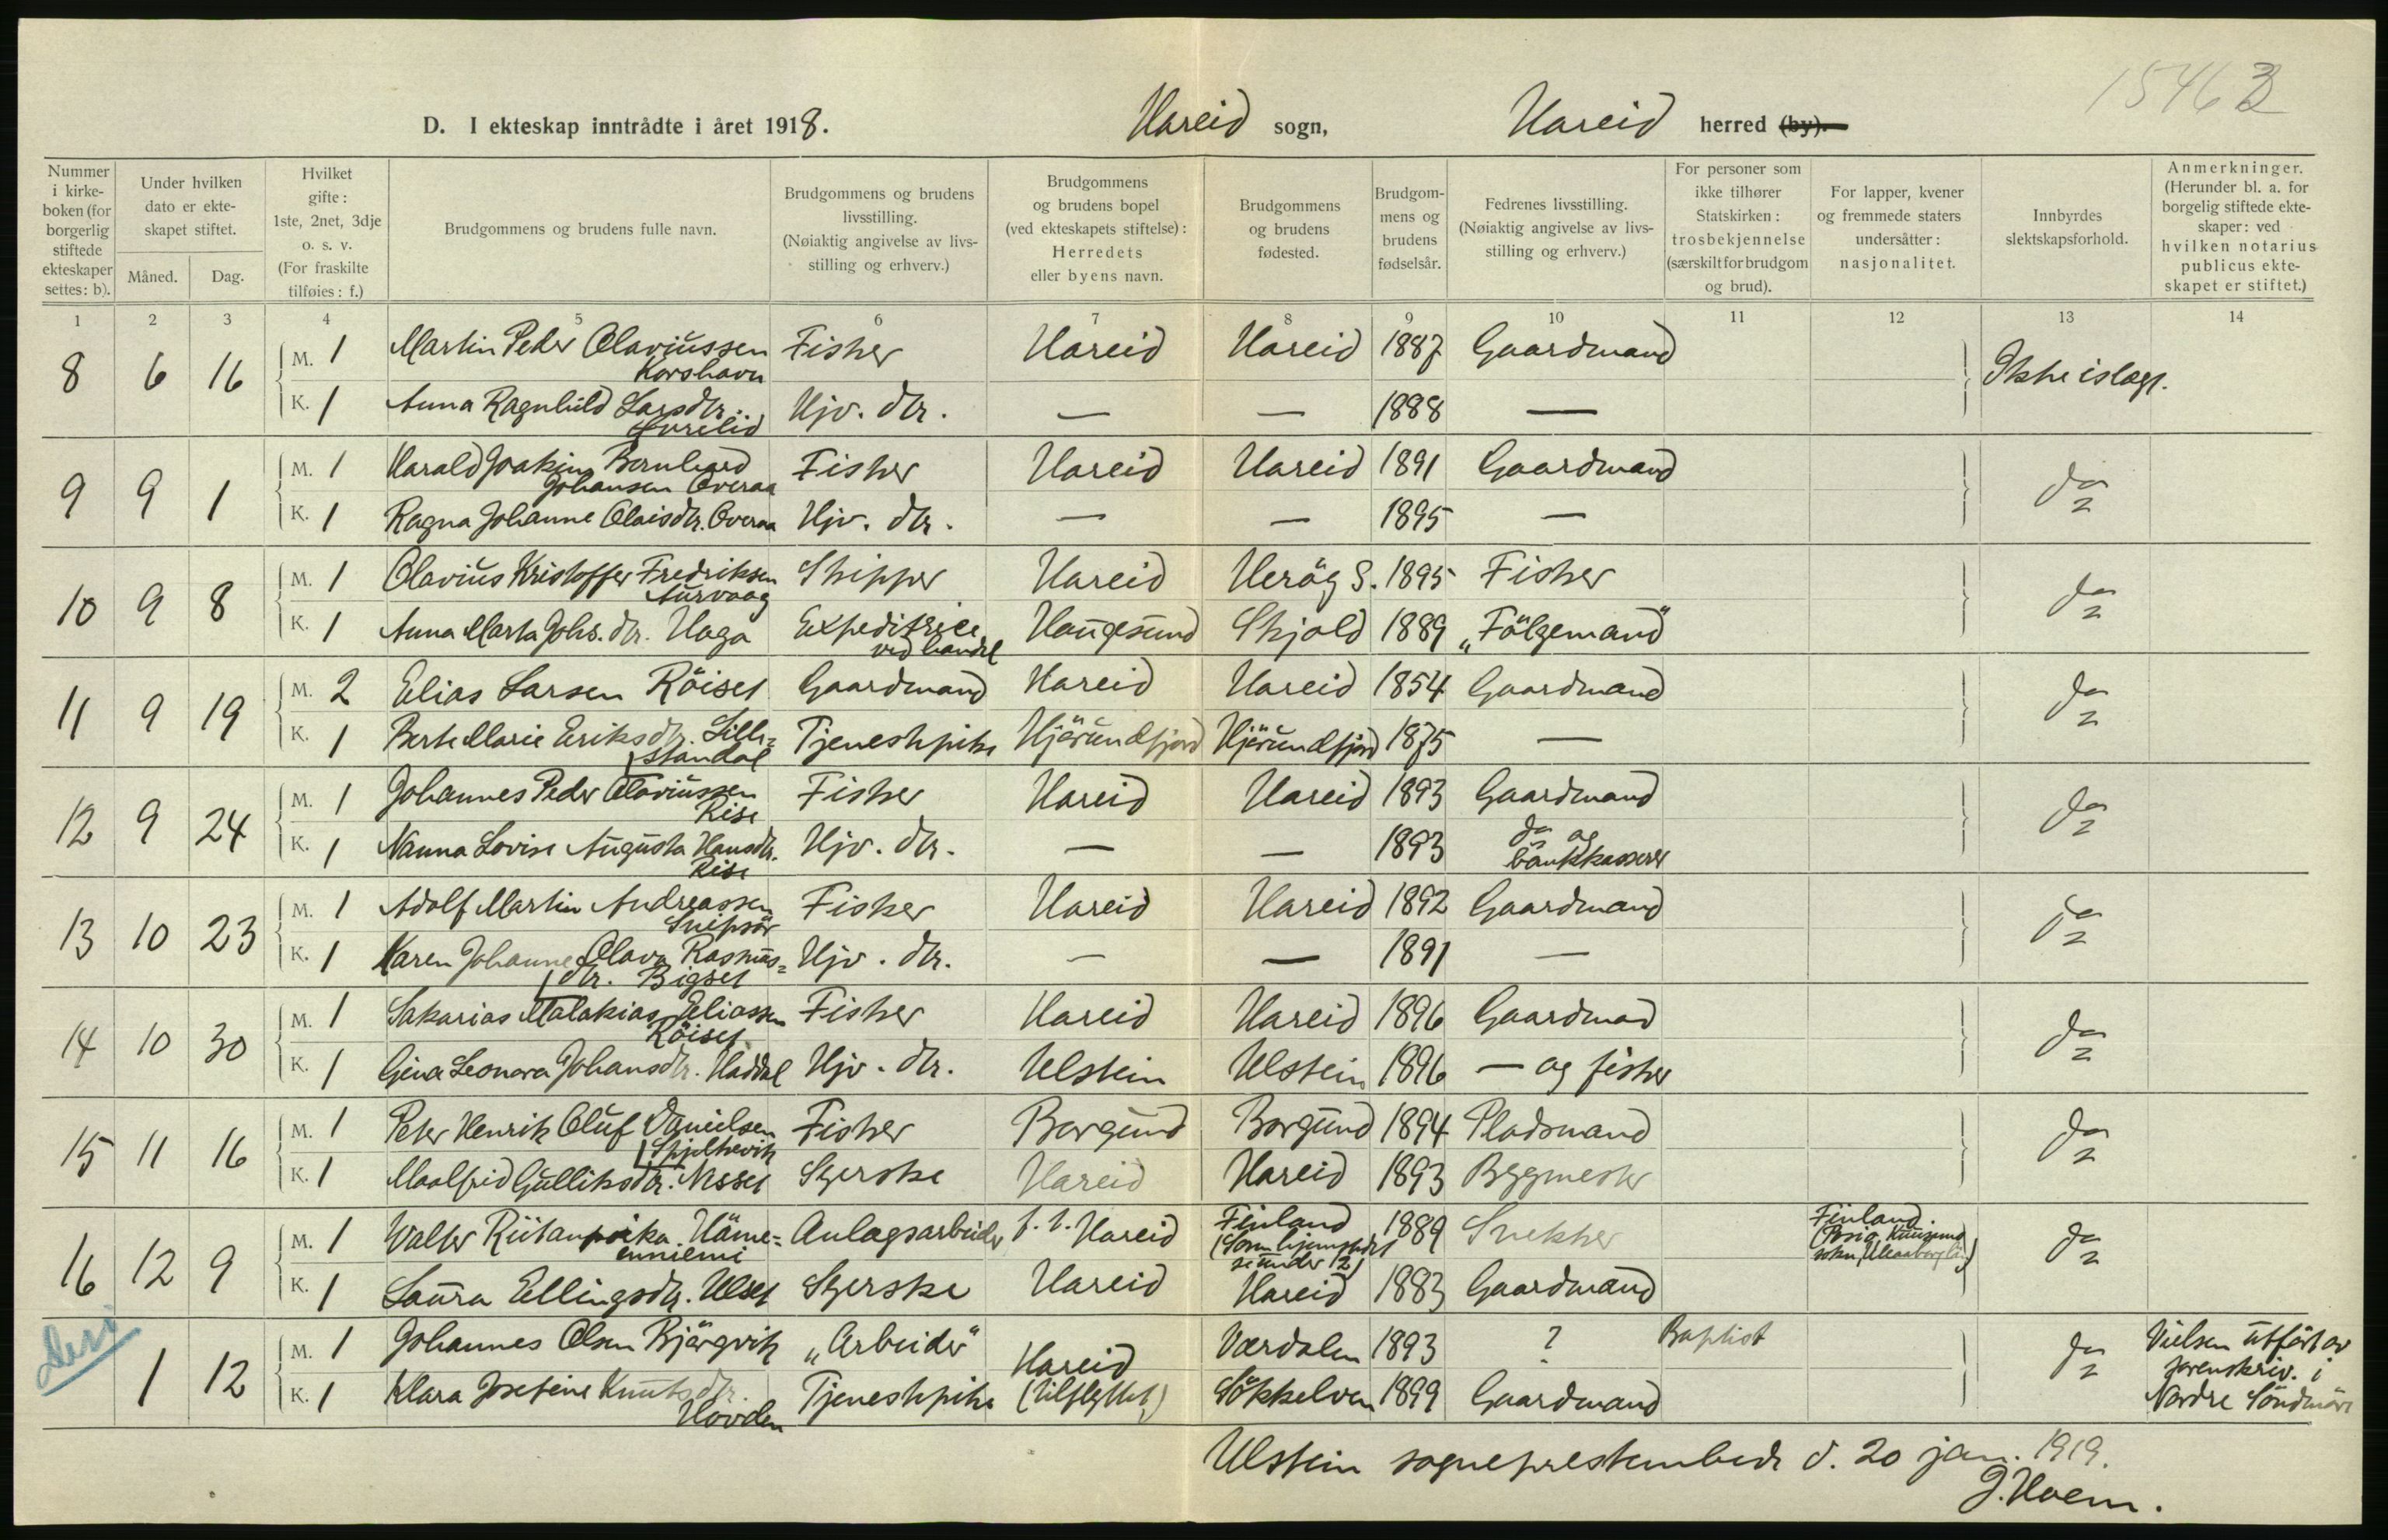 1546 3
D. I ekteskap inntrådte i året 1918. Hareid sogn, Hareid herred (by).
Nummer i kirkeboken (for borgerlig stiftede ekteskaper settes: b).
Under hvilken dato er ekteskapet stiftet.
Måned. Dag.
Hvilket gifte: 1ste, 2net, 3dje o. s. v. (For fraskilte tilføies: f.)
Brudgommens og brudens fulle navn.
Brudgommens og brudens livsstilling. (Nøiaktig angivelse av livsstilling og erhverv.)
Brudgommens og brudens bopel (ved ekteskapets stiftelse): Herredets eller byens navn.
Brudgommens og brudens fødested.
Brudgommens og brudens fødselsår.
Fedrenes livsstilling. (Nøiaktig angivelse av livsstilling og erhverv.)
For personer som ikke tilhører Statskirken: trosbekjennelse (særskilt for brudgom og brud).
For lapper, kvener og fremmede staters undersåtter: nasjonalitet.
Innbyrdes slektskapsforhold.
Anmerkninger. (Herunder bl. a. for borgelig stiftede ekteskaper: ved hvilken notarius publicus ekteskapet er stiftet.)
1 2 3 4 5 6 7 8 9 10 11 12 13 14
8 6 16 M. 1 Martin Peder Olaviussen Korshavn Fisker Hareid Hareid 1887 Gaardmand Ikke i slægt.
K. 1 Anna Ragnhild Larsdtr. Hjv. dtr. — — 1888 —
9 9 1 M. 1 Harald Joakim Bernhard Johansen Overaa Fisker Hareid Hareid 1891 Gaardmand do
K. 1 Ragna Johanne Olaisdtr. Overaa Hjv. dtr. — — 1895 —
10 9 8 M. 1 Olavius Kristoffer Fredriksen Aurvaag Skipper Hareid Herøy S. 1895 Fisker do
K. 1 Anna Marta Johs. dtr. Haga Expeditrice ved handel Haugesund Skjold 1889 „Følgemand“
11 9 19 M. 2 Elias Larsen Röiset Gaardmand Hareid Hareid 1854 Gaardmand do
K. 1 Berte Marie Eriksdtr. Lille=standal Tjenestpike Hjørundfjord Hjørundfjord 1875 —
12 9 24 M. 1 Johannes Peder Olaviussen Rise Fisker Hareid Hareid 1893 Gaardmand do
K. 1 Nanna Lovise Augusta Hansdtr. Rise Hjv. dtr. — — 1893 do og bankkasserer
13 10 23 M. 1 Adolf Martin Andreassen Snipsør Fisker Hareid Hareid 1892 Gaardmand do
K. 1 Karen Johanne Olava Rasmus=dtr. Bigset Hjv. dtr. — — 1891 —
14 10 30 M. 1 Sakarias Malakias Eliassen Röiset Fisker Hareid Hareid 1896 Gaardmad do
K. 1 Gina Leonora Johansdtr. Haddal Hjv. dtr. Ulstein Ulstein 1896 — og fisker
15 11 16 M. 1 Peter Henrik Oluf Danielsen Spjelkevik Fisker Borgund Borgund 1894 Pladsmand do
K. 1 Maalfrid Gulliksdtr. Nesset Syerske Hareid Hareid 1893 Byggmester
16 12 9 M. 1 Walter Riitanpoika Häme=enniemi Anlagsarbeider f. t. Hareid Finland (Som hjemsted se under 12) 1889 Snekker Finland. (Posio, Kuusamo sokn, Uleaborg län) do
K. 1 Laura Ellingsdtr. Ulset Syerske Hareid Hareid 1883 Gaardmand
1 12 M. 1 Johannes Olsen Bjørgvik „Arbeider“ Hareid (tilflyttet) Værdalen 1893 ? Baptist do Vielsen utført av sorenskriv. i Nordre Søndmøre
K. 1 Klara Josefine Knutsdtr. Hovden Tjenestpike Søkkelven 1899 Gaardmand
Ulstein sogneprestembede d. 20 jan. 1919.
J. Hoem.